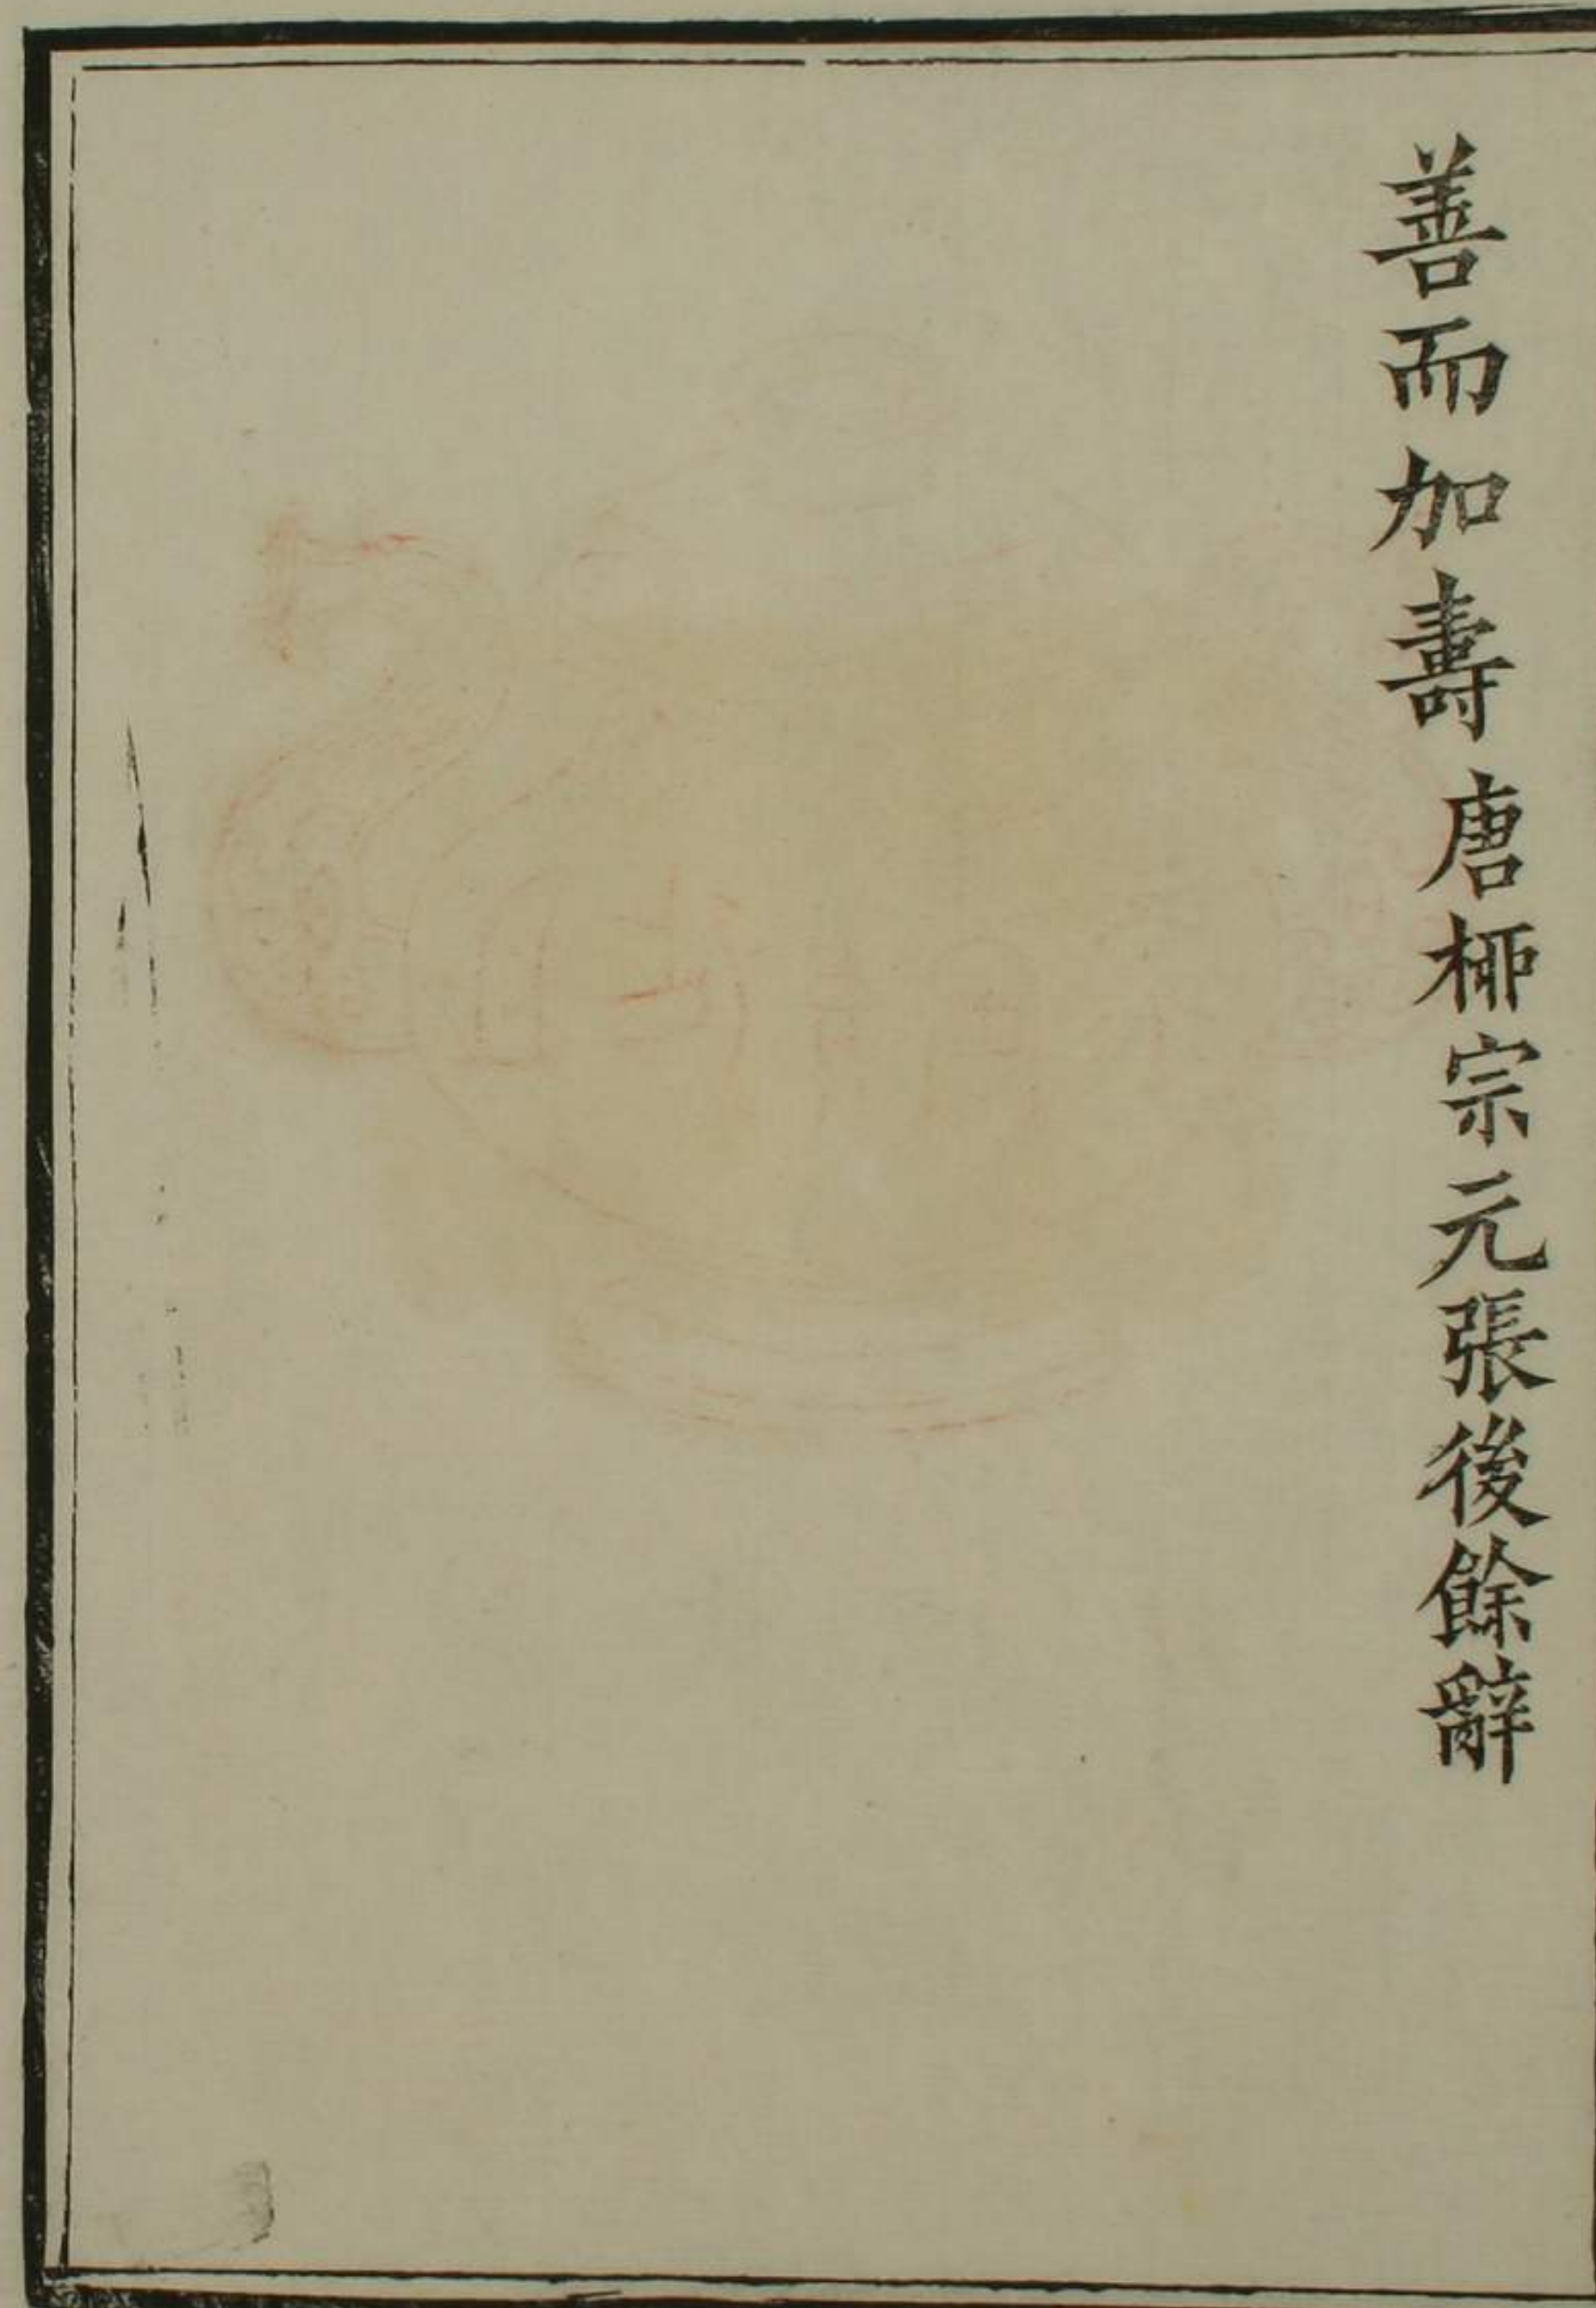 善而加壽唐柳宗元張後餘辭